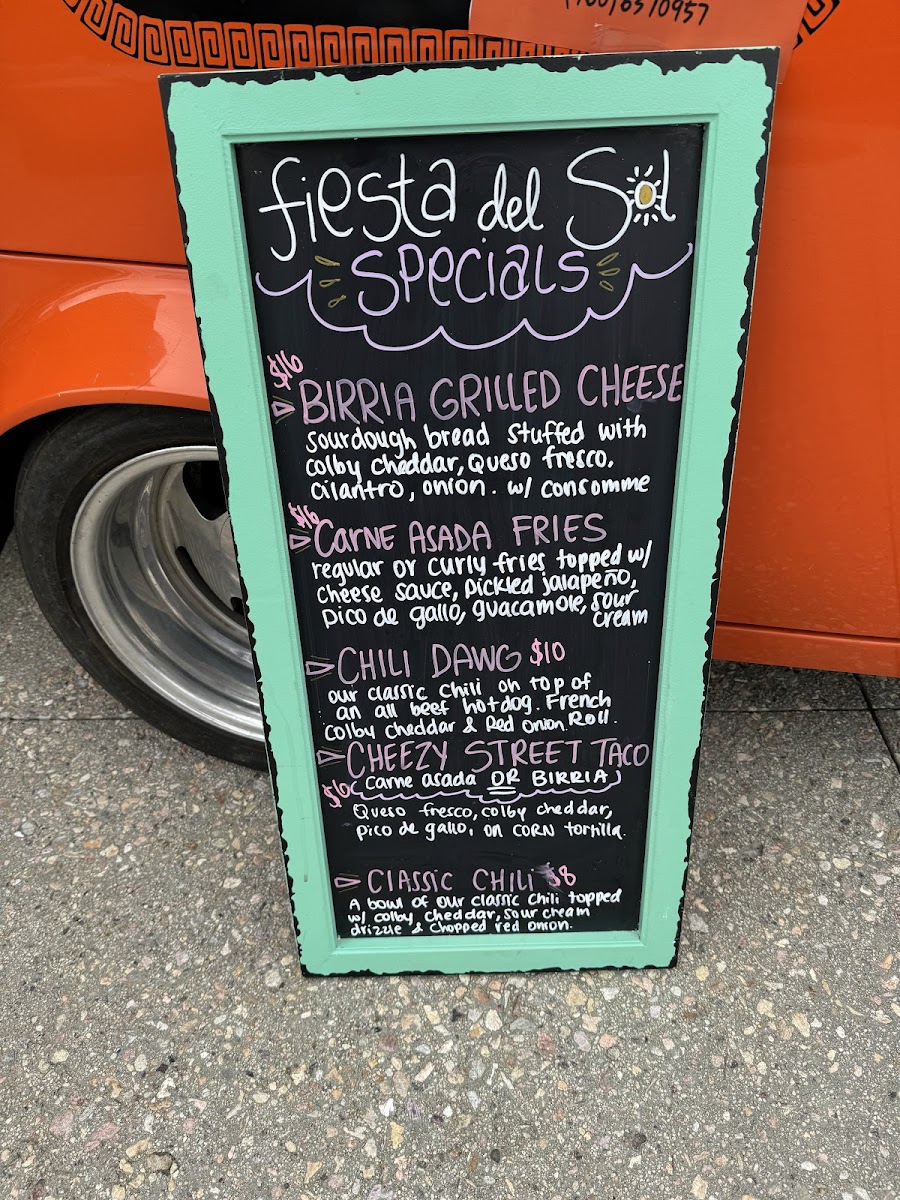 fiesta del Sol
SPECIALS
$16
BIRRIA GRILLED CHEESE
sourdough bread stuffed with
colby cheddar, Queso fresco,
cilantro, onion. w/ consomme
$16
CARNE ASADA FRIES
regular or curly fries topped w/
cheese sauce, pickled jalapeño,
pico de gallo, guacamole, sour
cream
CHILI DAWG $10
our classic chili on top of
an all beef hotdog. French
colby cheddar & Red onion. Roll.
CHEEZY STREET TACO
$6 (carne asada OR BIRRIA)
Queso fresco, colby cheddar,
pico de gallo, on CORN tortilla.
CLASSIC CHILI $8
A bowl of our classic chili topped
w/ colby, cheddar, sour cream
drizzle & chopped red onion.